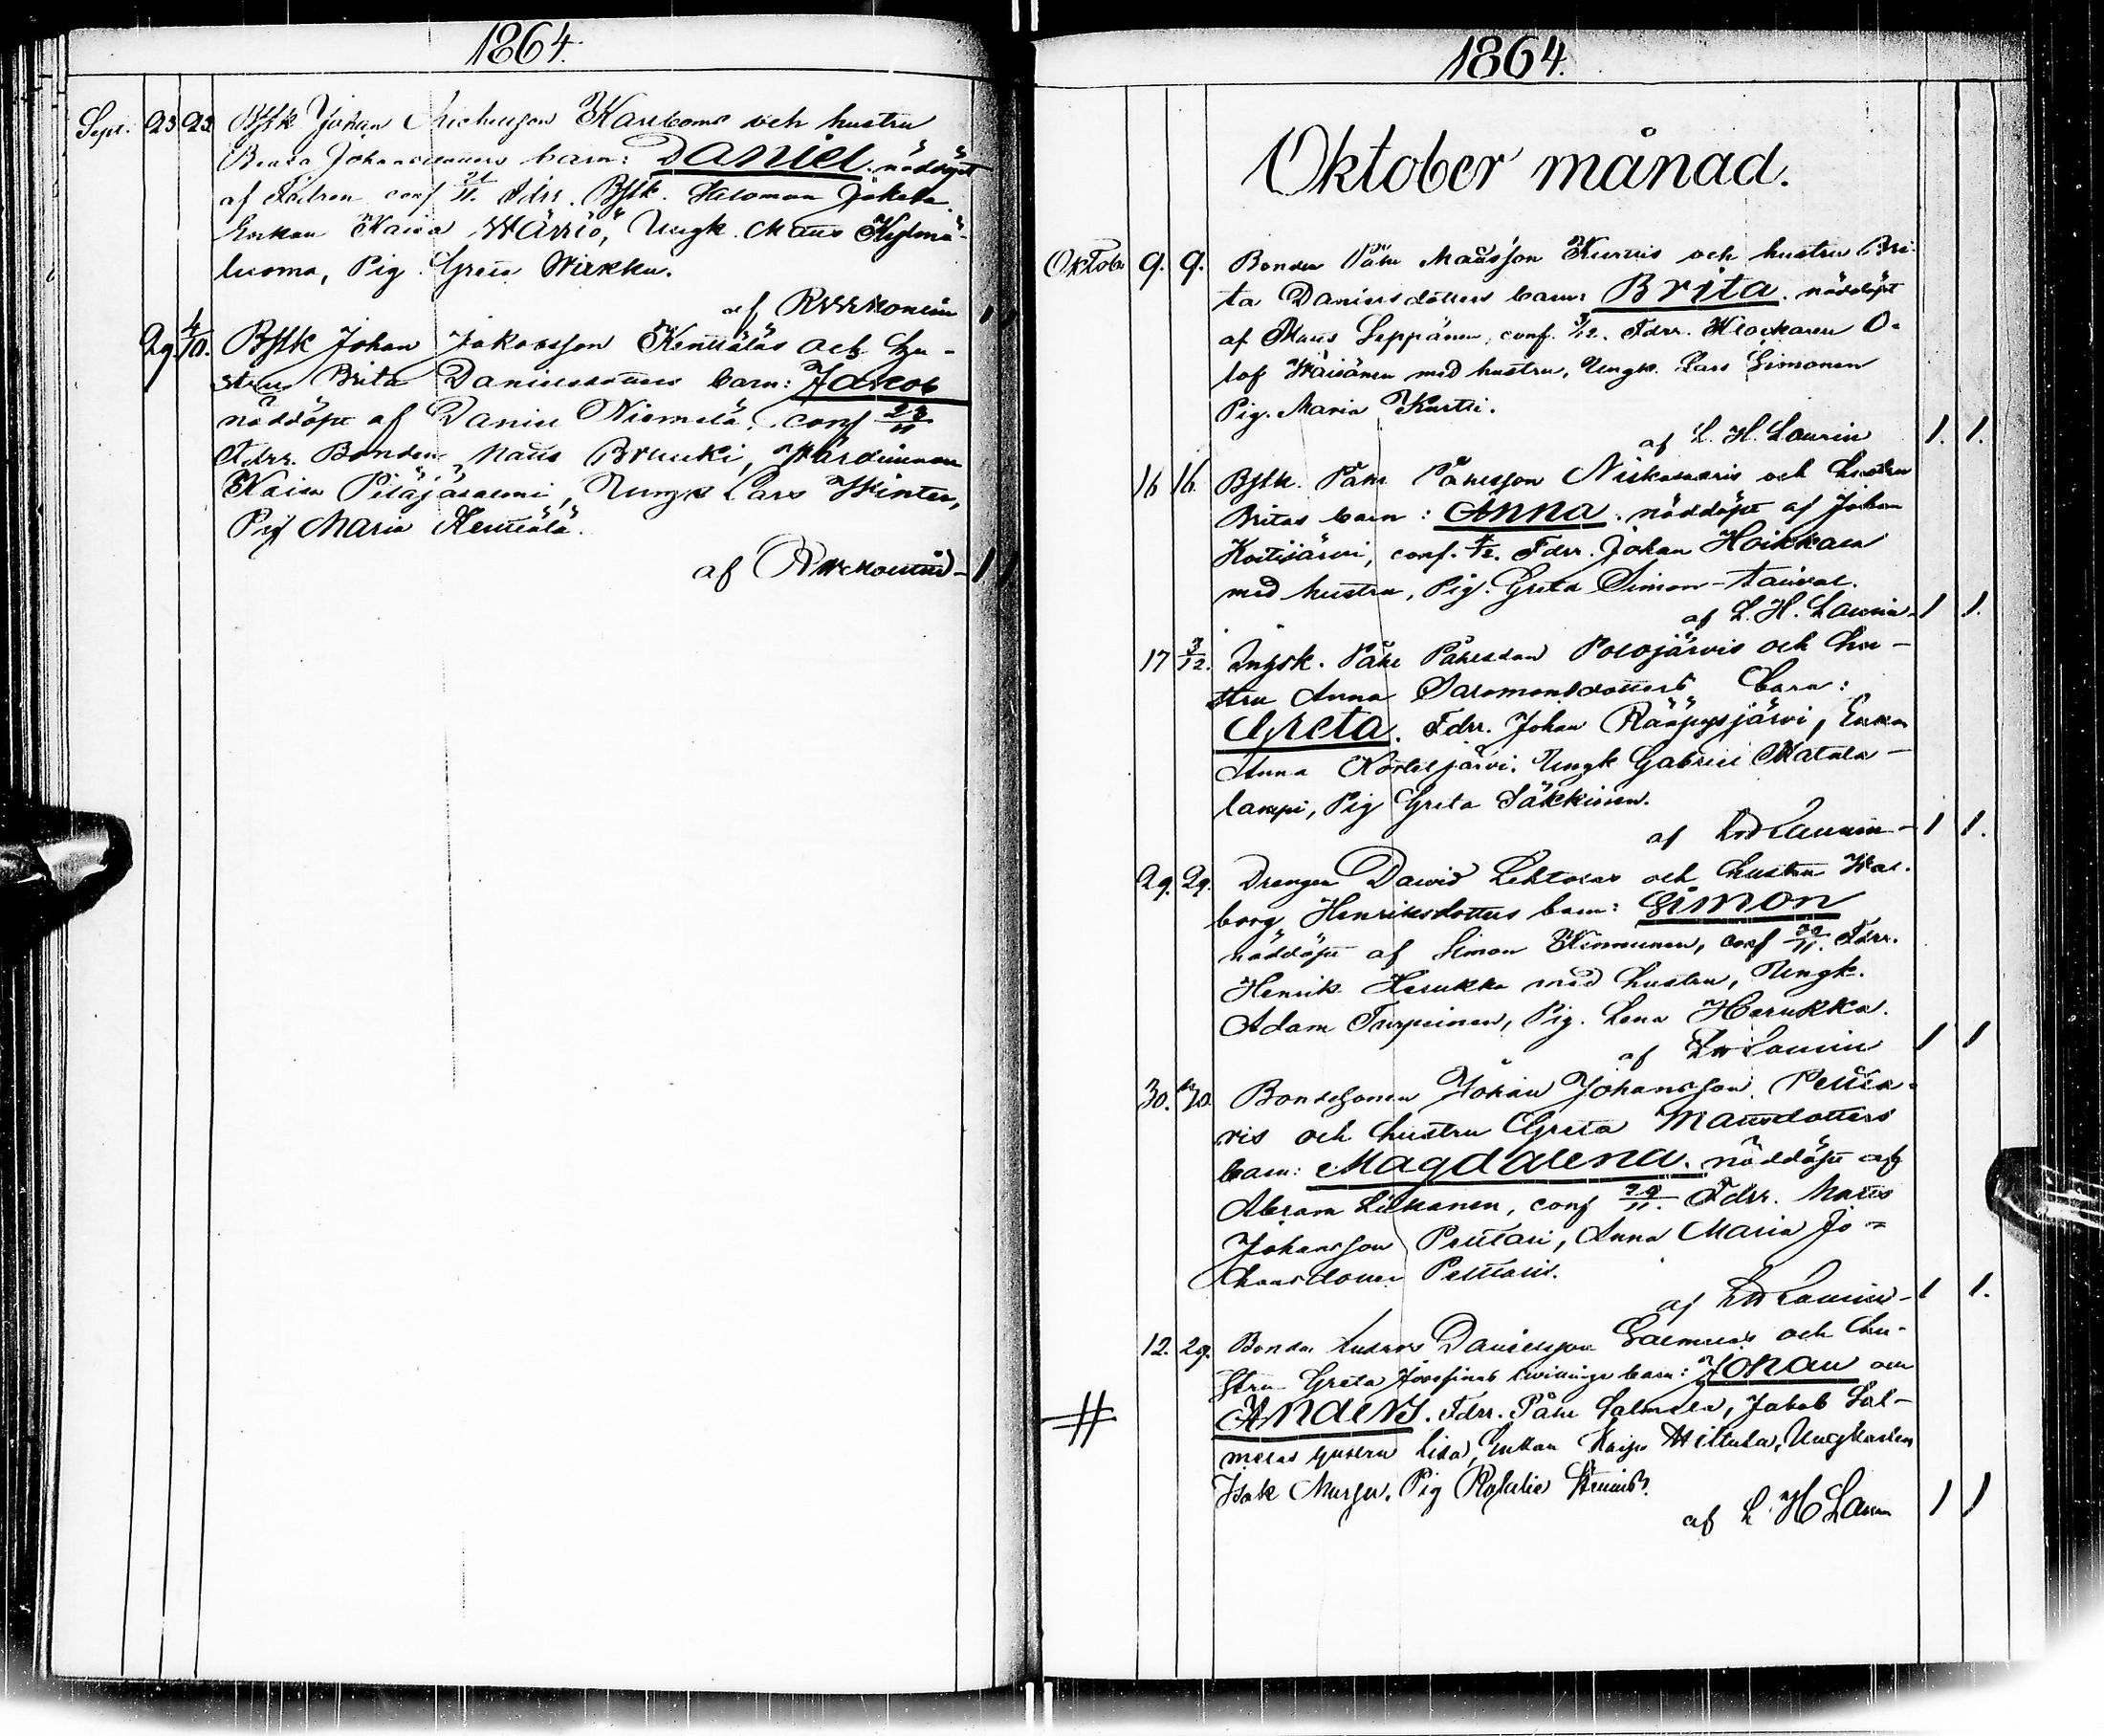 1864.
Sept. 23 23 Bfsk Johan Michelsson Karlboms och hustru
Johansdotters barn: Daniel. nöddöpt
af Fadren conf 21/11. Fdrr. Bfsk. Salomon Jokela
Enkan Kaisa Wärriö, Ungk. Matts Kylmä-
luoma, Pig. Greta Wirkku.
af
29. 4/10. Bfsk Johan Jakobsson Kenttäläs och hu-
stru Brita Danielsdotters barn: Jacob
nöddöpt af Daniel Niemelä, conf 23/11
Fdrr. Bonden Matts Bruuki, Wärdinnan
Kaisa Pitäjäsalmi, Ungk Lars Winter,
Pig Maria Kenttälä.
af
1864.
Oktober månad.
Oktob. 9. 9. Bonden Påhl Matsson Kurvis och hustru Bri-
ta Danielsdotters barn: Brita. nöddöpt
af Matts Seppänen, conf. 3/12. Fdrr. Klockaren O-
lof Wäisänen med hustru, Ungk. Lars Simonen
Pig. Maria Kurtti.
af L. H. Laurin 1. 1.
16 16. Bfsk. Påhl Påhlsson och hustru
Britas barn: Anna. nöddöpt af Johan
conf. Fdrr. Johan Hoikkala
med hustru, Pig. Greta Simon-
af L. H. Laurin - 1 1.
17 3/12. Påhl Påhlsson Polojärvis och hu-
stru Anna Salomonsdotters barn:
Greta. Fdrr. Johan Rääpysjärvi, Enkan
Anna Ungk Gabriel Matala-
lampi, Pig Greta Säkkinen.
af Laurin - 1 1.
29. 29. Drengen David Lehtolas och hustru Wal-
borg Henriksdotters barn: Simon
nöddöpt af Simon Kinnunen, conf Fdrr.
Henrik Herukka med hustru, Ungk.
Adam Turpeinen, Pig. Lena Herukka.
af Laurin 1 1
30. 30. Bondesonen Johan Johansson
ris och hustru Greta Mattsdotters
barn: Magdalena. nöddöpt af
Abram Liikanen, conf 29/11. Fdrr. Matts
Johansson Anna Maria Jo-
hansdotter
af Laurin - 1 1.
12. 29. Bonden Anders Danielsson Salmelas och hu-
stru Greta Josefinas tvillinge barn: Johan och
# Anders. Fdrr. Påhl Salmela, Jakob Sal-
melas hustru Lisa, Enkan Kaisa Mittula, Ungkarlen
Isak Pig
af L. H Laurin 1 1